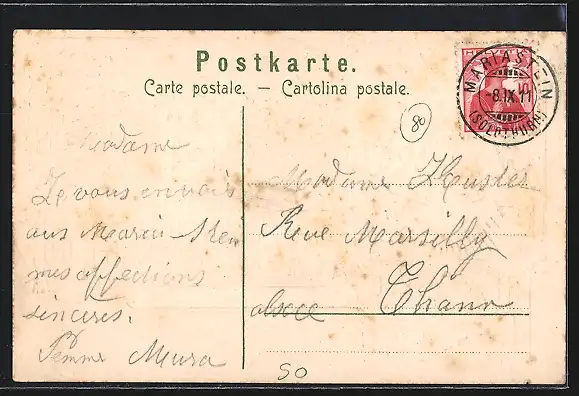 Postkarte.
Carte postale. — Cartolina postale.
HELVETIA
MARIASTEIN
-8.IX.11
(SOLOTHURN)
80
Madame
Je vous envois
mes affections
sinceres.
Mura
Madame
Rue Marsilly
alsace Thann
SO